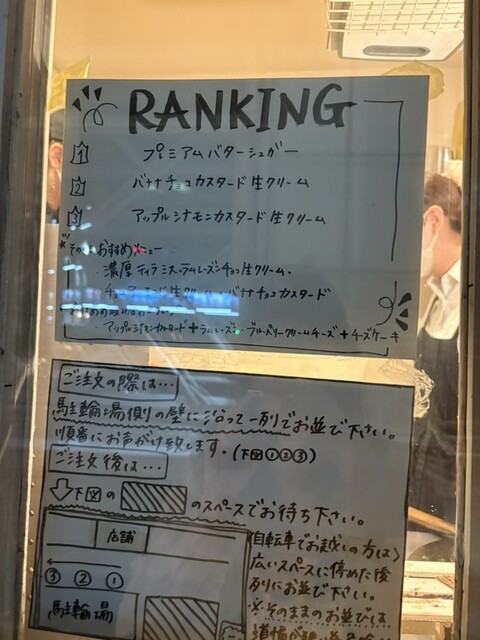 RANKING
1 プレミアムバターシュガー
2 バナナチョコカスタード生クリーム
3 アップルシナモンカスタード生クリーム
おすすめメニュー
・濃厚ティラミス・ラムレーズンチョコ生クリーム・
生クリーム・バナナチョコカスタード
・アップルシナモンカスタード+ラムレーズン・ブルーベリークリームチーズ+チーズケーキ
ご注文の際は…
駐輪場側の壁に沿って一列でお並び下さい。
順番にお声がけ致します。(下図①②③)
ご注文後は…
下図の のスペースでお待ち下さい。
店舗
③ ② ①
駐輪場
(自転車でお越しの方は)
広いスペースに停めた後
列にお並び下さい。
※そのままのお並びは